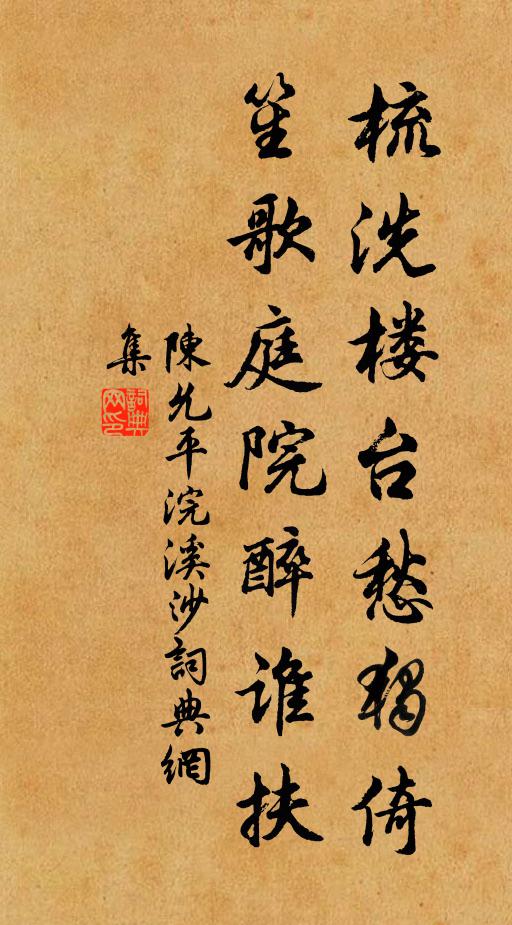 梳洗楼台愁独倚
笙歌庭院醉谁扶
陳允平浣溪沙詞典網
集
詞典网印